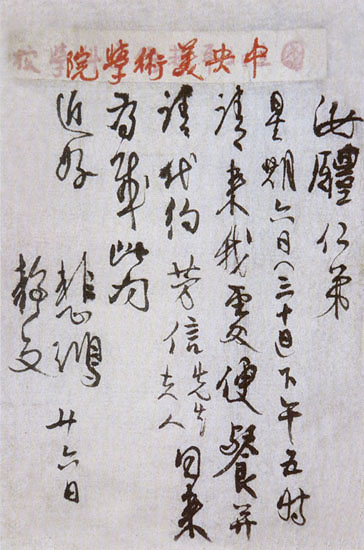 中央美術學院
汝醴仁弟
星期六日（三十日）下午五時
請來我處便餐并
請代約 芳信先生夫人同來
為感此問
近好 悲鴻 廿六日
靜文